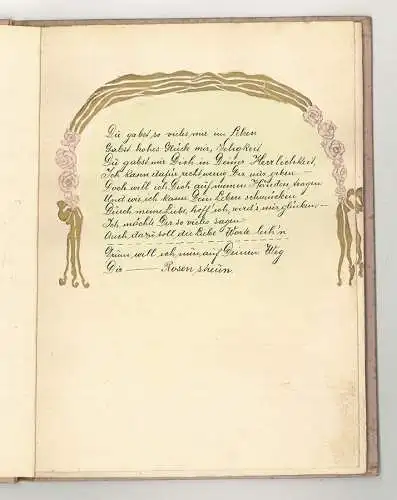 Du gabst so vieles mir im Leben
Gabst hohes Glück mir, Seligkeit
Du gabst mir Dich in Deiner Herrlichkeit,
Ich kann dafür recht wenig Dir nur geben
Doch will ich Dich auf meinen Händen tragen
Und wie ich kann Dein Leben schmücken
Durch meine Liebe, hoff' ich, wird's mir glücken, –
Ich möcht' Dir so vieles sagen
Auch dazu soll die Liebe Worte leih'n
Drum will ich nun auf Deinen Weg
Dir — Rosen streun.